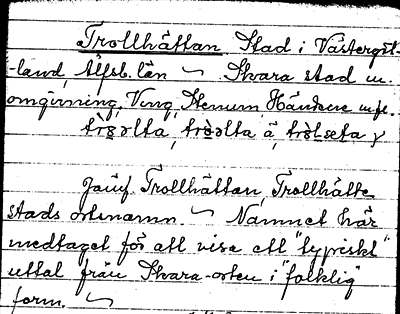 Trollhättan Stad i Västergöt-
-land, Älfsb. län ~ Skara stad m.
omgivning, Ving, Stenum, Händene m.fl.
trɔ̀lta, trɔ̀lta å, trɔ̀lseta
Jämf. Trollhättan, Trollhätte
stads ortnamn. ~ Namnet här
medtaget för att visa ett "typiskt"
uttal från Skara-orten i "folklig"
form. ~